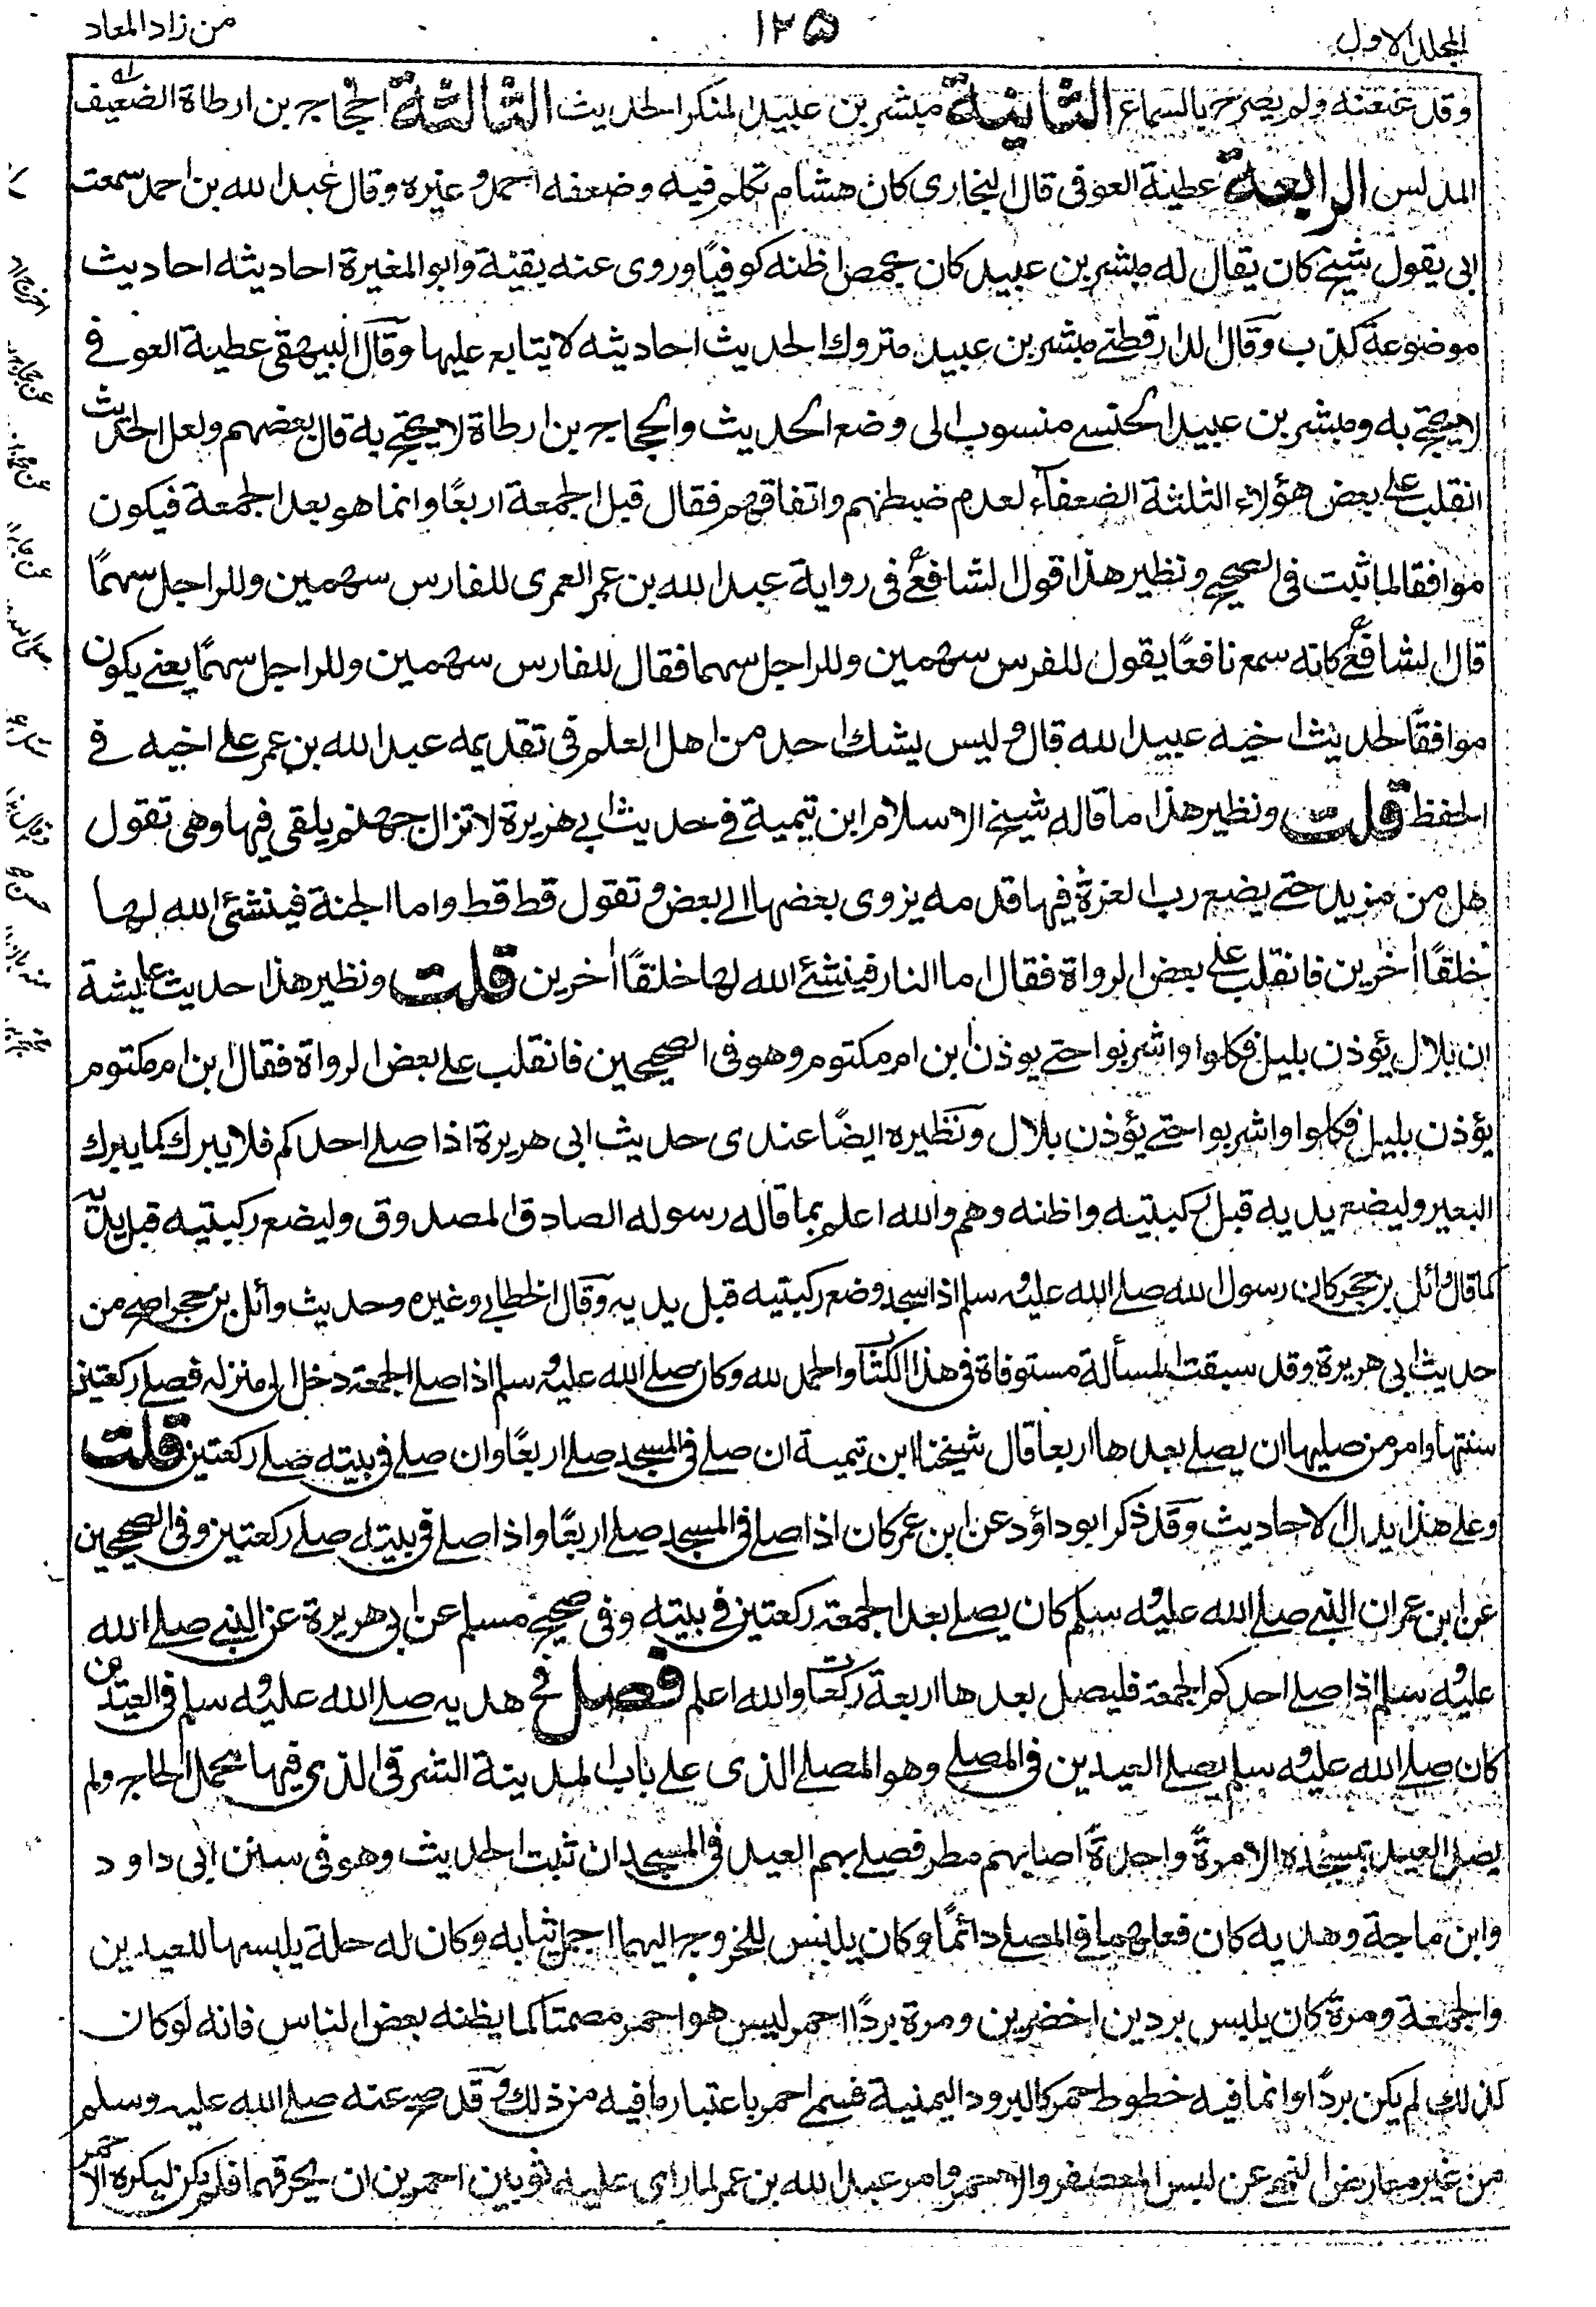 المجلد الاول
١٢٥
من زاد المعاد
وقد عنعنه ولم يصرح بالسماع الثانية مبشر بن عبيد المنكر الحديث الثالثة الحجاج بن ارطاة الضعيف
المدلس الرابعة عطية العوفى قال البخارى كان هشام تكلم فيه وضعفه احمد وغيره وقال عبد الله بن احمد سمعت
ابى يقول شيخ كان يقال له مبشر بن عبيد كان بحمص اظنه كوفيًا وروى عنه بقية وابو المغيرة احاديثه احاديث
موضوعة كذب وقال الدارقطني مبشر بن عبيد متروك الحديث احاديثه لا يتابع عليها وقال البيهقى عطية العوفي
لا يحتج به ومبشر بن عبيد الحمصي منسوب الى وضع الحديث والحجاج بن ارطاة لا يحتج به قال بعضهم ولعل الحديث
انقلب على بعض هؤلاء الثلثة الضعفآء لعدم ضبطهم واتقانهم فقال قبل الجمعة اربعًا وانما هو بعد الجمعة فيكون
موافقا لما ثبت فى الصحيح ونظير هذا قول الشافعي فى رواية عبد الله بن عمر العمرى للفارس سهمين وللراجل سهمًا
قال الشافعي كانه سمع نافعًا يقول للفرس سهمين وللراجل سهما فقال للفارس سهمين وللراجل سهمًا يعني يكون
موافقًا لحديث اخيه عبيد الله قال وليس يشك احد من اهل العلم فى تقديمه عبيد الله بن عمر على اخيه في
الحفظ قلت ونظير هذا ما قاله شيخ الاسلام ابن تيمية في حديث ابي هريرة لا تزال جهنم يلقى فيها وهى تقول
هل من مزيد حتى يضع رب العزة فيها قدمه يزوى بعضها الى بعض وتقول قط قط واما الجنة فينشئ الله لها
خلقًا أخرين فانقلب على بعض الرواة فقال اما النار فينشئ الله لها خلقًا أخرين قلت ونظير هذا حديث عايشة
ان بلال يؤذن بليل فكلوا واشربوا حتى يوذن ابن ام مكتوم وهو فى الصحيحين فانقلب على بعض الرواة فقال ابن ام مكتوم
يؤذن بليل فكلوا واشربوا حتى يؤذن بلال ونظيره ايضًا عندى حديث ابى هريرة اذا صلى احدكم فلا يبرك كما يبرك
البعير وليضع يديه قبل ركبتيه واظنه وهم والله اعلم بما قاله رسوله الصادق المصدوق وليضع ركبتيه قبل يديه
كما قال وائل بن حجر كان رسول الله صلى الله عليه وسلم اذا سجد وضع ركبتيه قبل يديه وقال الخطابي وغيره وحديث وائل بن حجر اصح من
حديث ابى هريرة وقد سبقت المسألة مستوفاة فى هذا الكتاب والحمد لله وكان صلى الله عليه وسلم اذا صلى الجمعة دخل الى منزله فصلى ركعتين
سنتها وامر من صليها ان يصلي بعدها اربعا قال شيخنا ابن تيمية ان صلى فى المسجد صلى اربعًا وان صلى فى بيته صلى ركعتين قلت
وعلى هذا يدل الاحاديث وقد ذكر ابو داؤد عن ابن عمر كان اذا صلى فى المسجد صلى اربعًا واذا صلى فى بيته صلى ركعتين وفى الصحيحين
عن ابن عمر ان النبي صلى الله عليه وسلم كان يصلي بعد الجمعة ركعتين في بيته وفى صحيح مسلم عن ابى هريرة عن النبي صلى الله
عليه وسلم اذا صلى احدكم الجمعة فليصل بعدها اربعة ركعات والله اعلم فصل في هديه صلى الله عليه وسلم فى العيدين
كان صلى الله عليه وسلم يصلي العيدين فى المصلى وهو المصلى الذى على باب المدينة الشرقى الذى فيها محمل الحاج ولم
يصل العيد بمسجده الا مرةً واحدةً اصابهم مطر فصلى بهم العيد فى المسجد ان ثبت الحديث وهو فى سنن ابى داود
وابن ماجة وهديه كان فعلهما فى المصلى دائمًا وكان يلبس للخروج اليهما اجمل ثيابه وكان له حلة يلبسها للعيدين
والجمعة ومرة كان يلبس بردين اخضرين ومرة بردًا احمر ليس هو احمر مصمتا كما يظنه بعض الناس فانه لو كان
كذلك لم يكن بردًا وانما فيه خطوط حمر كالبرود اليمنية فسمى احمر باعتبار ما فيه من ذلك وقد صح عنه صلى الله عليه وسلم
من غير معارض النهي عن لبس المعصفر والاحمر وامر عبد الله بن عمر لما راى عليه ثوبان احمرين ان يحرقهما فلم يكن ليكره الاحمر